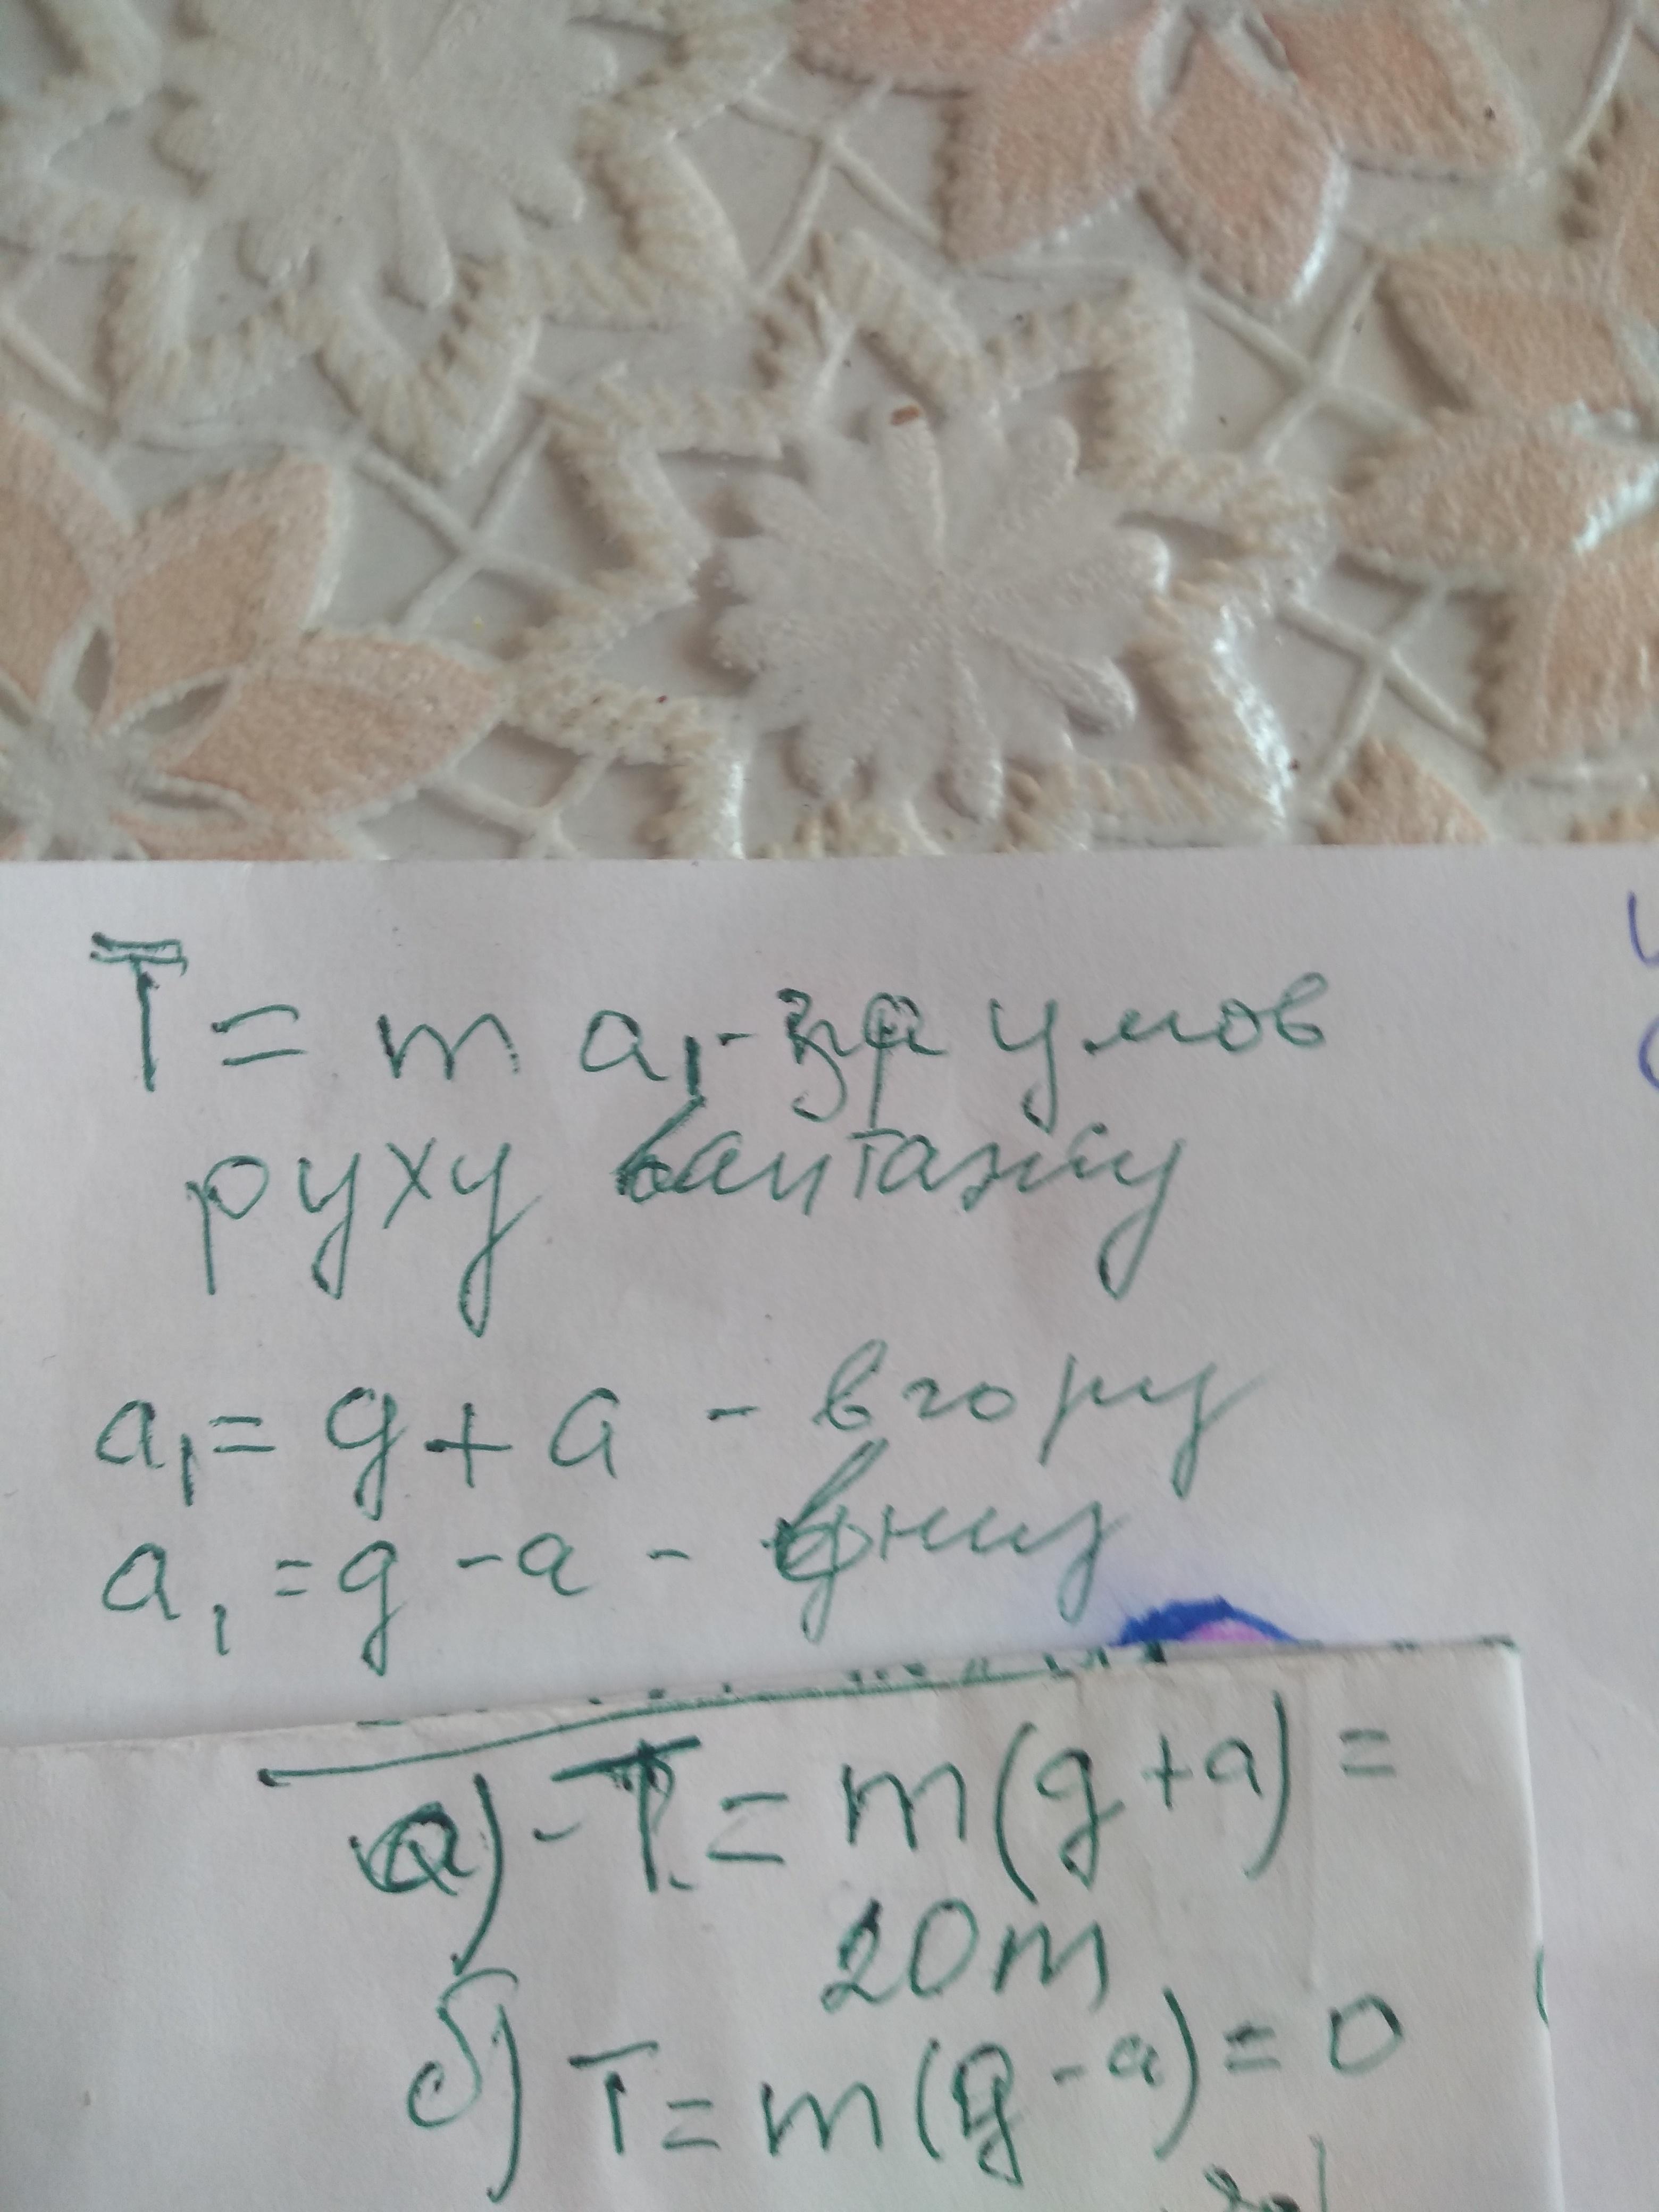 T = m a₁ - за умов
руху вантажу
a₁ = g + a - вгору
a₁ = g - a - вниз
а) - T = m(g + a) =
20m
б) T = m(g - a) = 0